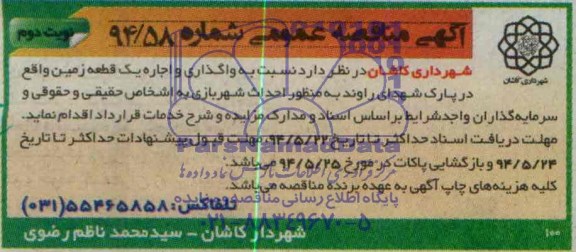 آگهی مناقصه عمومی شماره ۹۴/۵۸
نوبت دوم
شهرداری کاشان
شهرداری کاشان در نظر دارد نسبت به واگذاری و اجاره یک قطعه زمین واقع
در پارک شهدای راوند به منظور احداث شهربازی به اشخاص حقیقی و حقوقی و
سرمایه‌گذاران واجدشرایط براساس اسناد و مدارک مزایده و شرح خدمات قرارداد اقدام نماید.
مهلت دریافت اسناد حداکثر تا تاریخ ۹۴/۵/۲۲ مهلت قبول پیشنهادات حداکثر تا تاریخ
۹۴/۵/۲۴ و بازگشایی پاکات در مورخ ۹۴/۵/۲۵ می‌باشد.
کلیه هزینه‌های چاپ آگهی به عهده برنده مناقصه می‌باشد.
ParsNamadData
پایگاه اطلاع رسانی مناقصه و مزایده
تلفاکس: ۵۵۴۶۵۸۵۸ (۰۳۱)
۰۲۱-۸۸۳۴۹۶۷۰-۵
شهردار کاشان - سیدمحمد ناظم رضوی